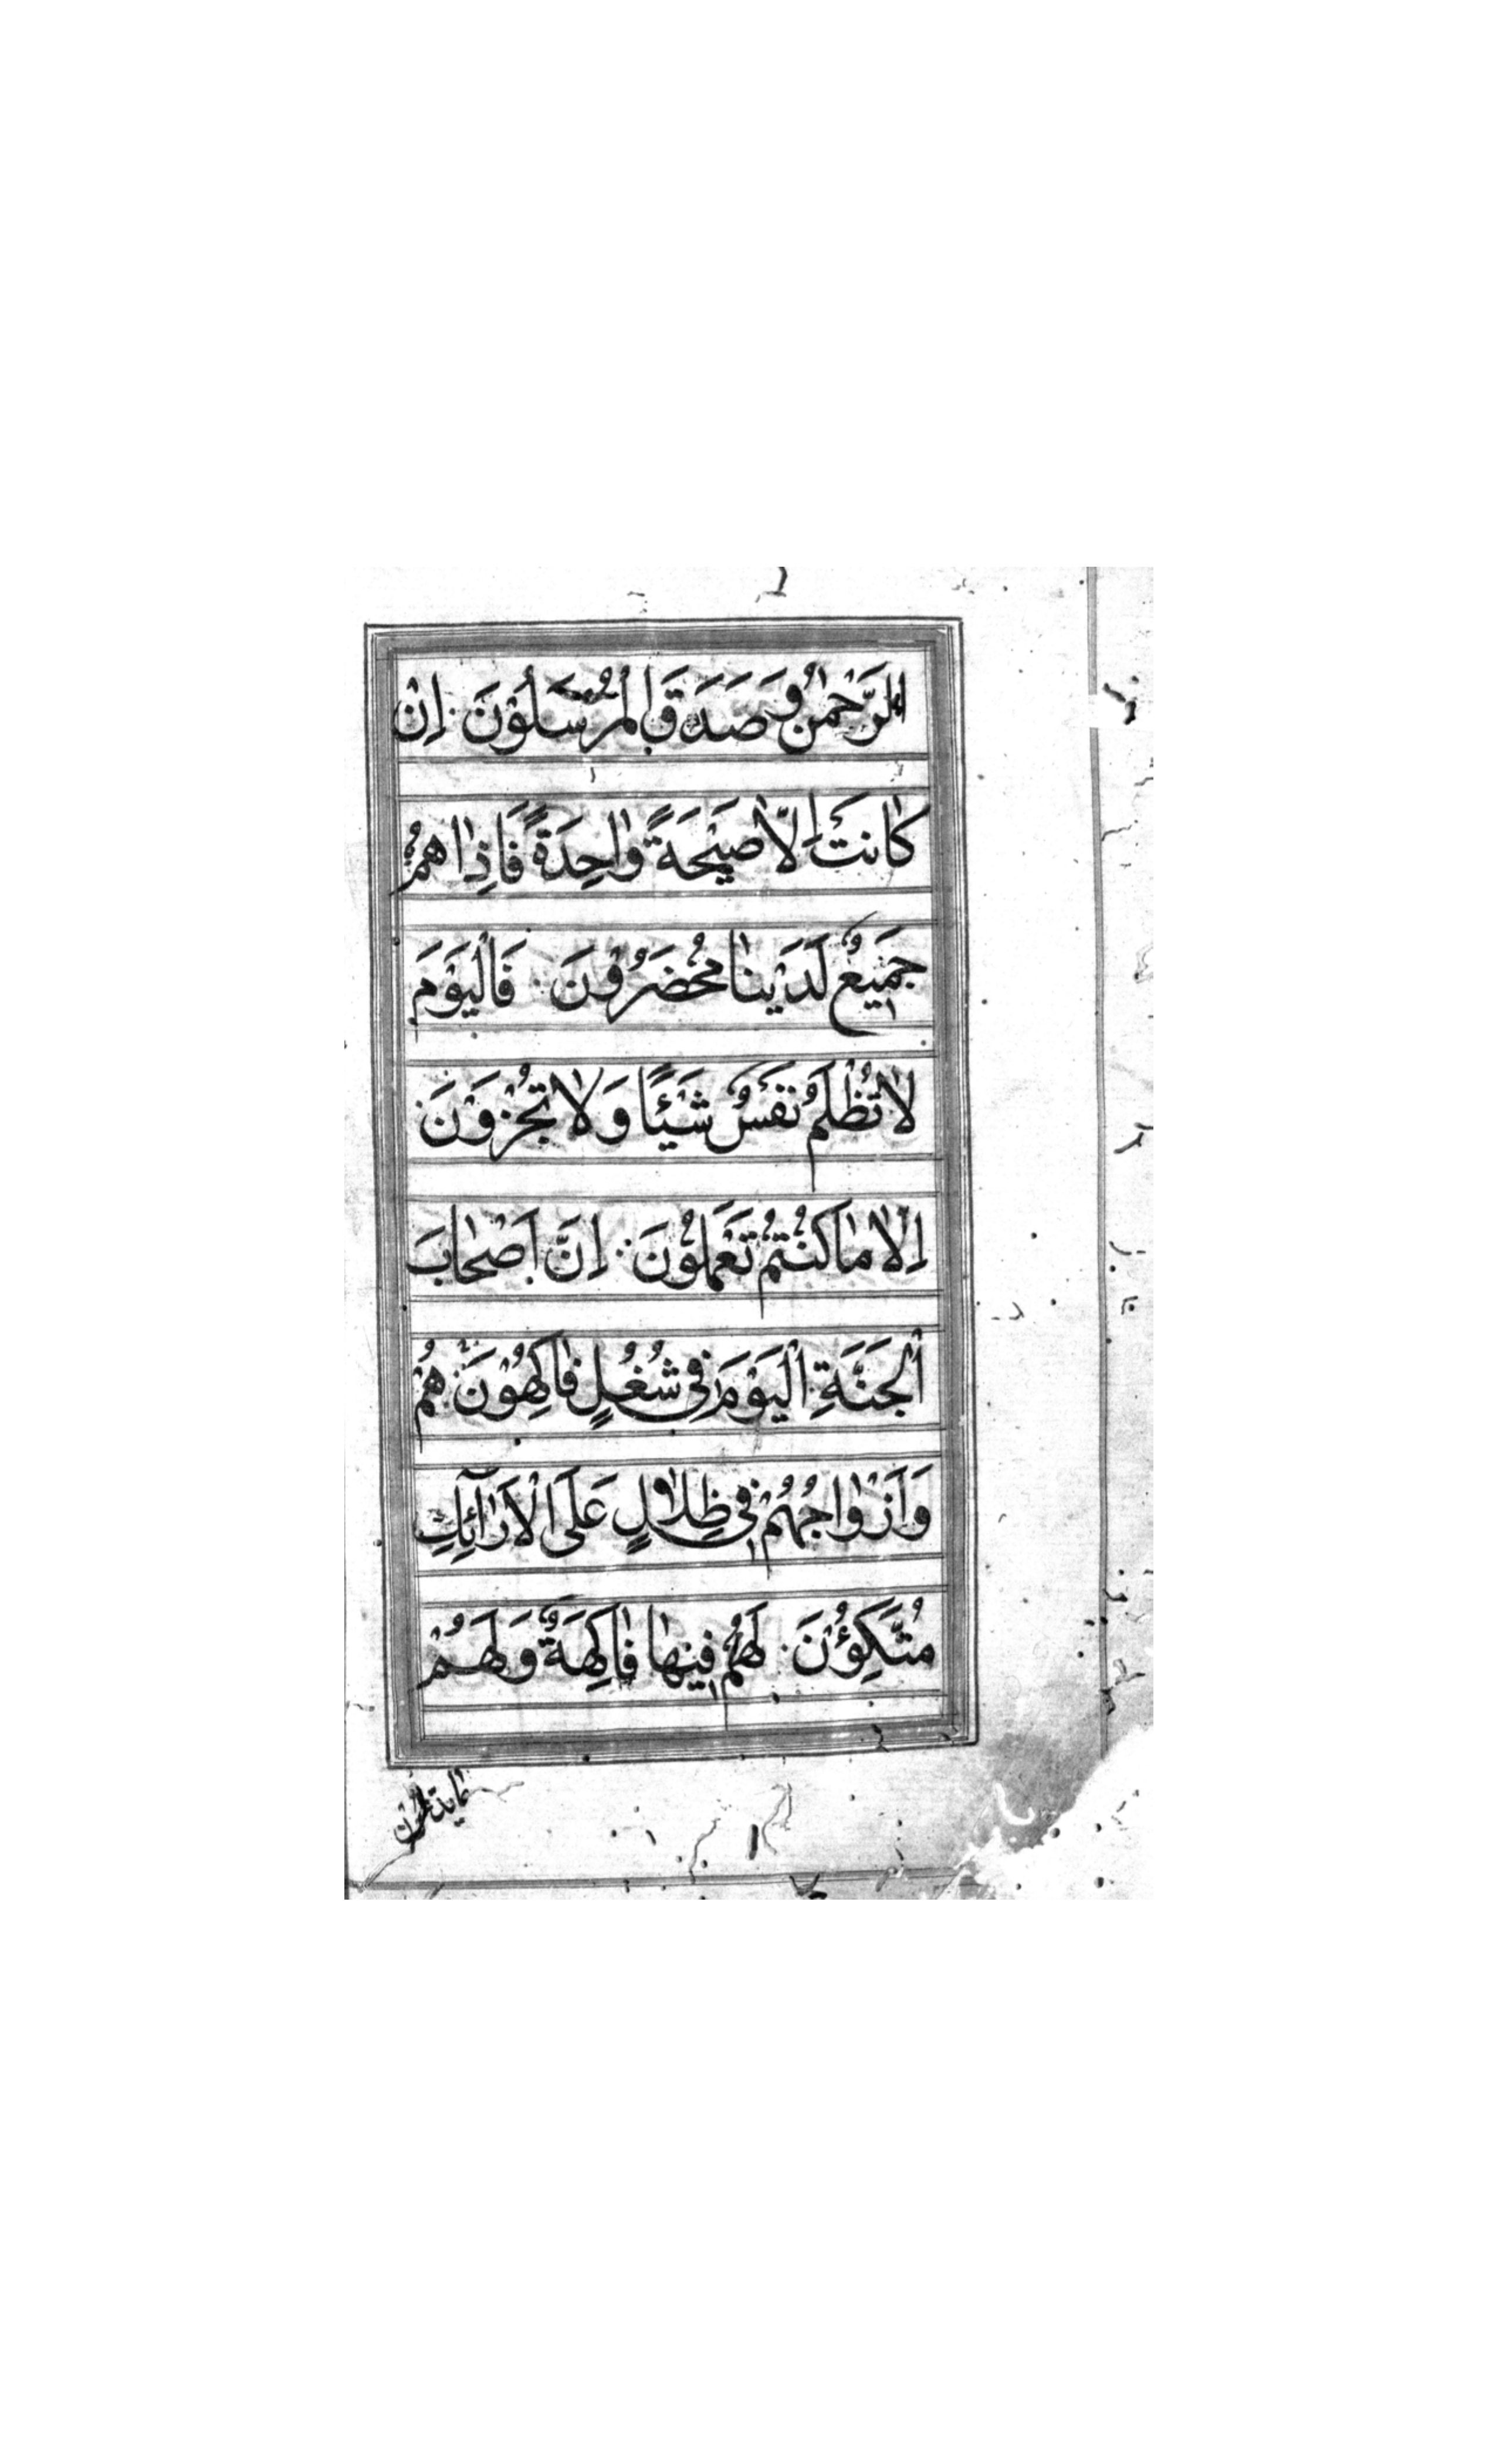 الرَّحْمٰنُ وَصَدَقَ الْمُرْسَلُوْنَ اِنْ
كٰانَتْ اِلّٰا صَيْحَةً وٰاحِدَةً فَاِذٰا هُمْ
جَمِيْعٌ لَدَيْنٰا مُحْضَرُوْنَ فَالْيَوْمَ
لٰا تُظْلَمُ نَفْسٌ شَيْئًا وَلٰا تُجْزَوْنَ
اِلّٰا مٰا كُنْتُمْ تَعْمَلُوْنَ اِنَّ اَصْحٰابَ
الْجَنَّةِ الْيَوْمَ فِى شُغُلٍ فٰاكِهُوْنَ هُمْ
وَاَزْوٰاجُهُمْ فِى ظِلٰالٍ عَلَى الْاَرٰآئِكِ
مُتَّكِؤُنَ لَهُمْ فِيْهٰا فٰاكِهَةٌ وَلَهُمْ
مايدعون